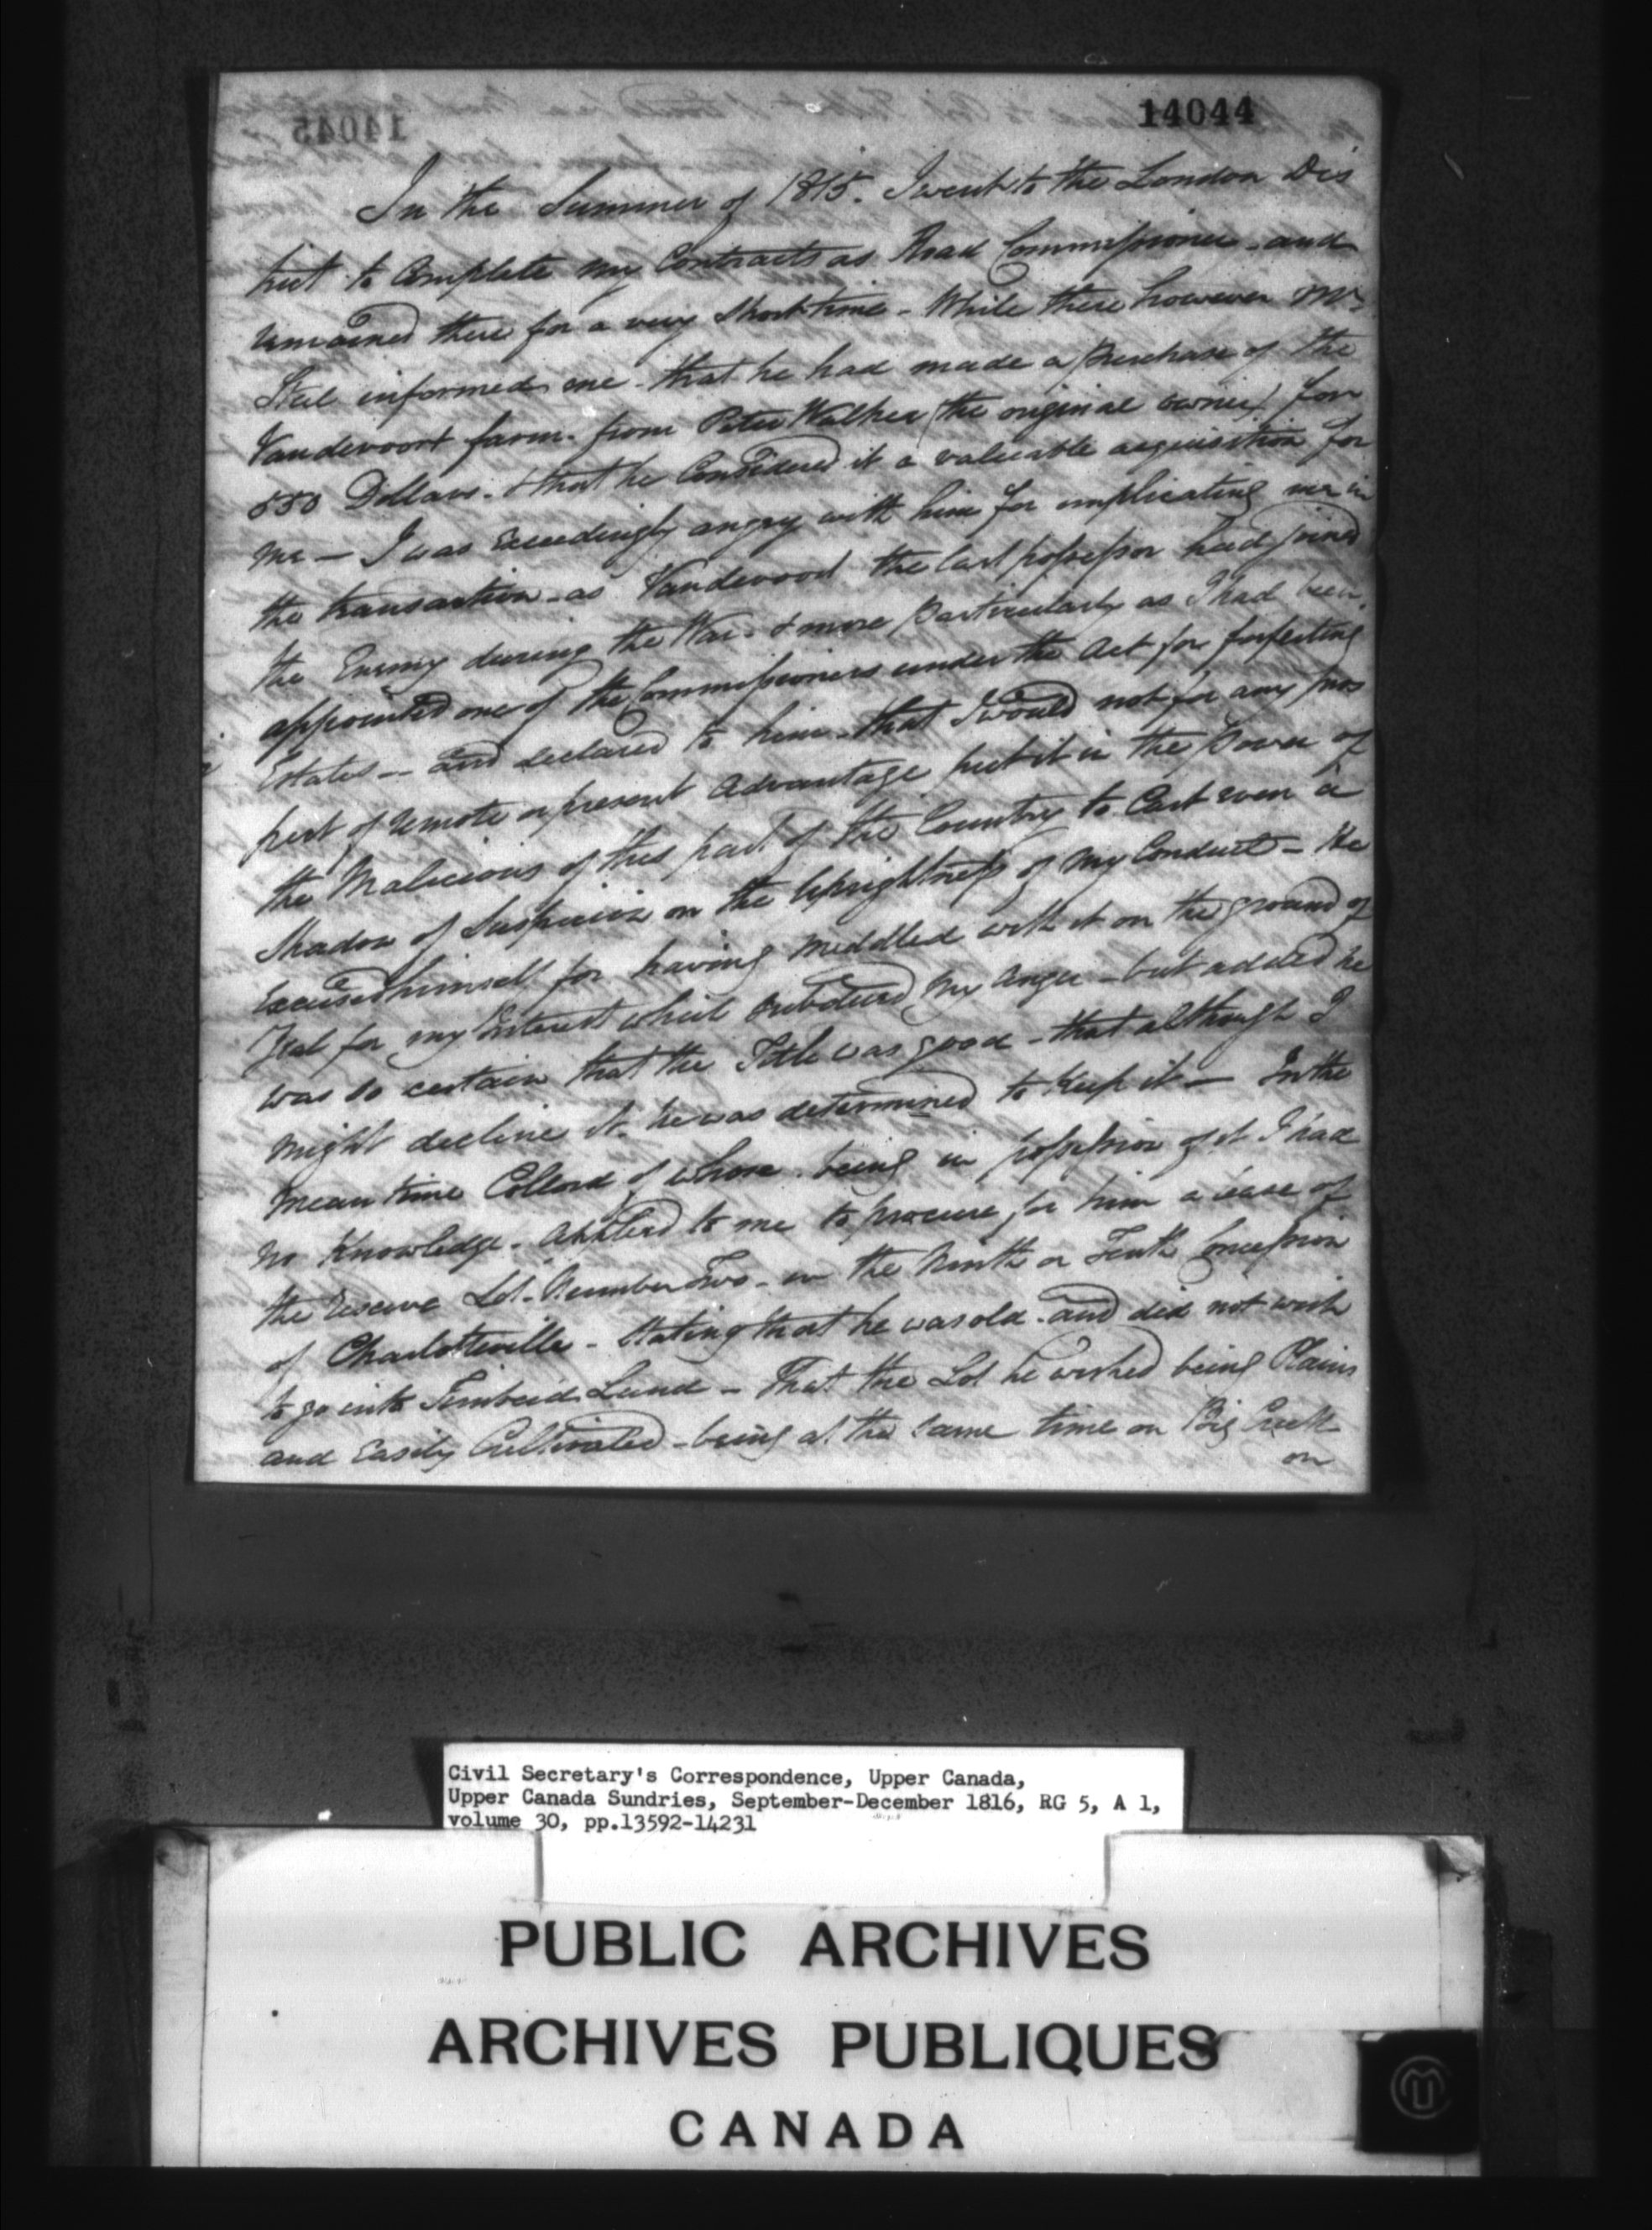 14044
In the Summer of 1815. I went to the London Dis
trict to Complete my Contracts as Road Commissioner - and
remained there for a very short time - While there however Mr
informed me - that he had made a purchase of the
Vandevoort farm - from Peter Walker (the original owner) for
550 Dollars - & that he Considered it a valuable acquisition for
me — I was Exceedingly angry with him for implicating me in
the transaction - as Vandevoort the last possessor had joined
the Enemy during the War - & more particularly as I had been
appointed one of the Commissioners under the Act for forfeiting
Estates — and declared to him - that I would not for any pros
pect of remote or present advantage put it in the Power of
the Malicious of this part of the Country to Cast even a
Shadow of Suspicion on the Uprightness of my Conduct - He
Excused himself for having meddled with it on the ground of
Zeal for my Interest which subdued my anger - but added he
was so certain that the Title was good - that although I
might decline it he was determined to Keep it — In the
mean time of whose being in possession of it I had
no Knowledge - applied to me to procure for him a lease of
the reserve Lot - Number Two - in the Ninth or Tenth Concession
of Charlotteville - Stating that he was old - and did not wish
to go into Timbered Land - That the Lot he wished being Plains
and Easily Cultivated - being at the same time on Big Creek
on
14045
Civil Secretary's Correspondence, Upper Canada,
Upper Canada Sundries, September-December 1816, RG 5, A 1,
volume 30, pp.13592-14231
PUBLIC ARCHIVES
ARCHIVES PUBLIQUES
CANADA